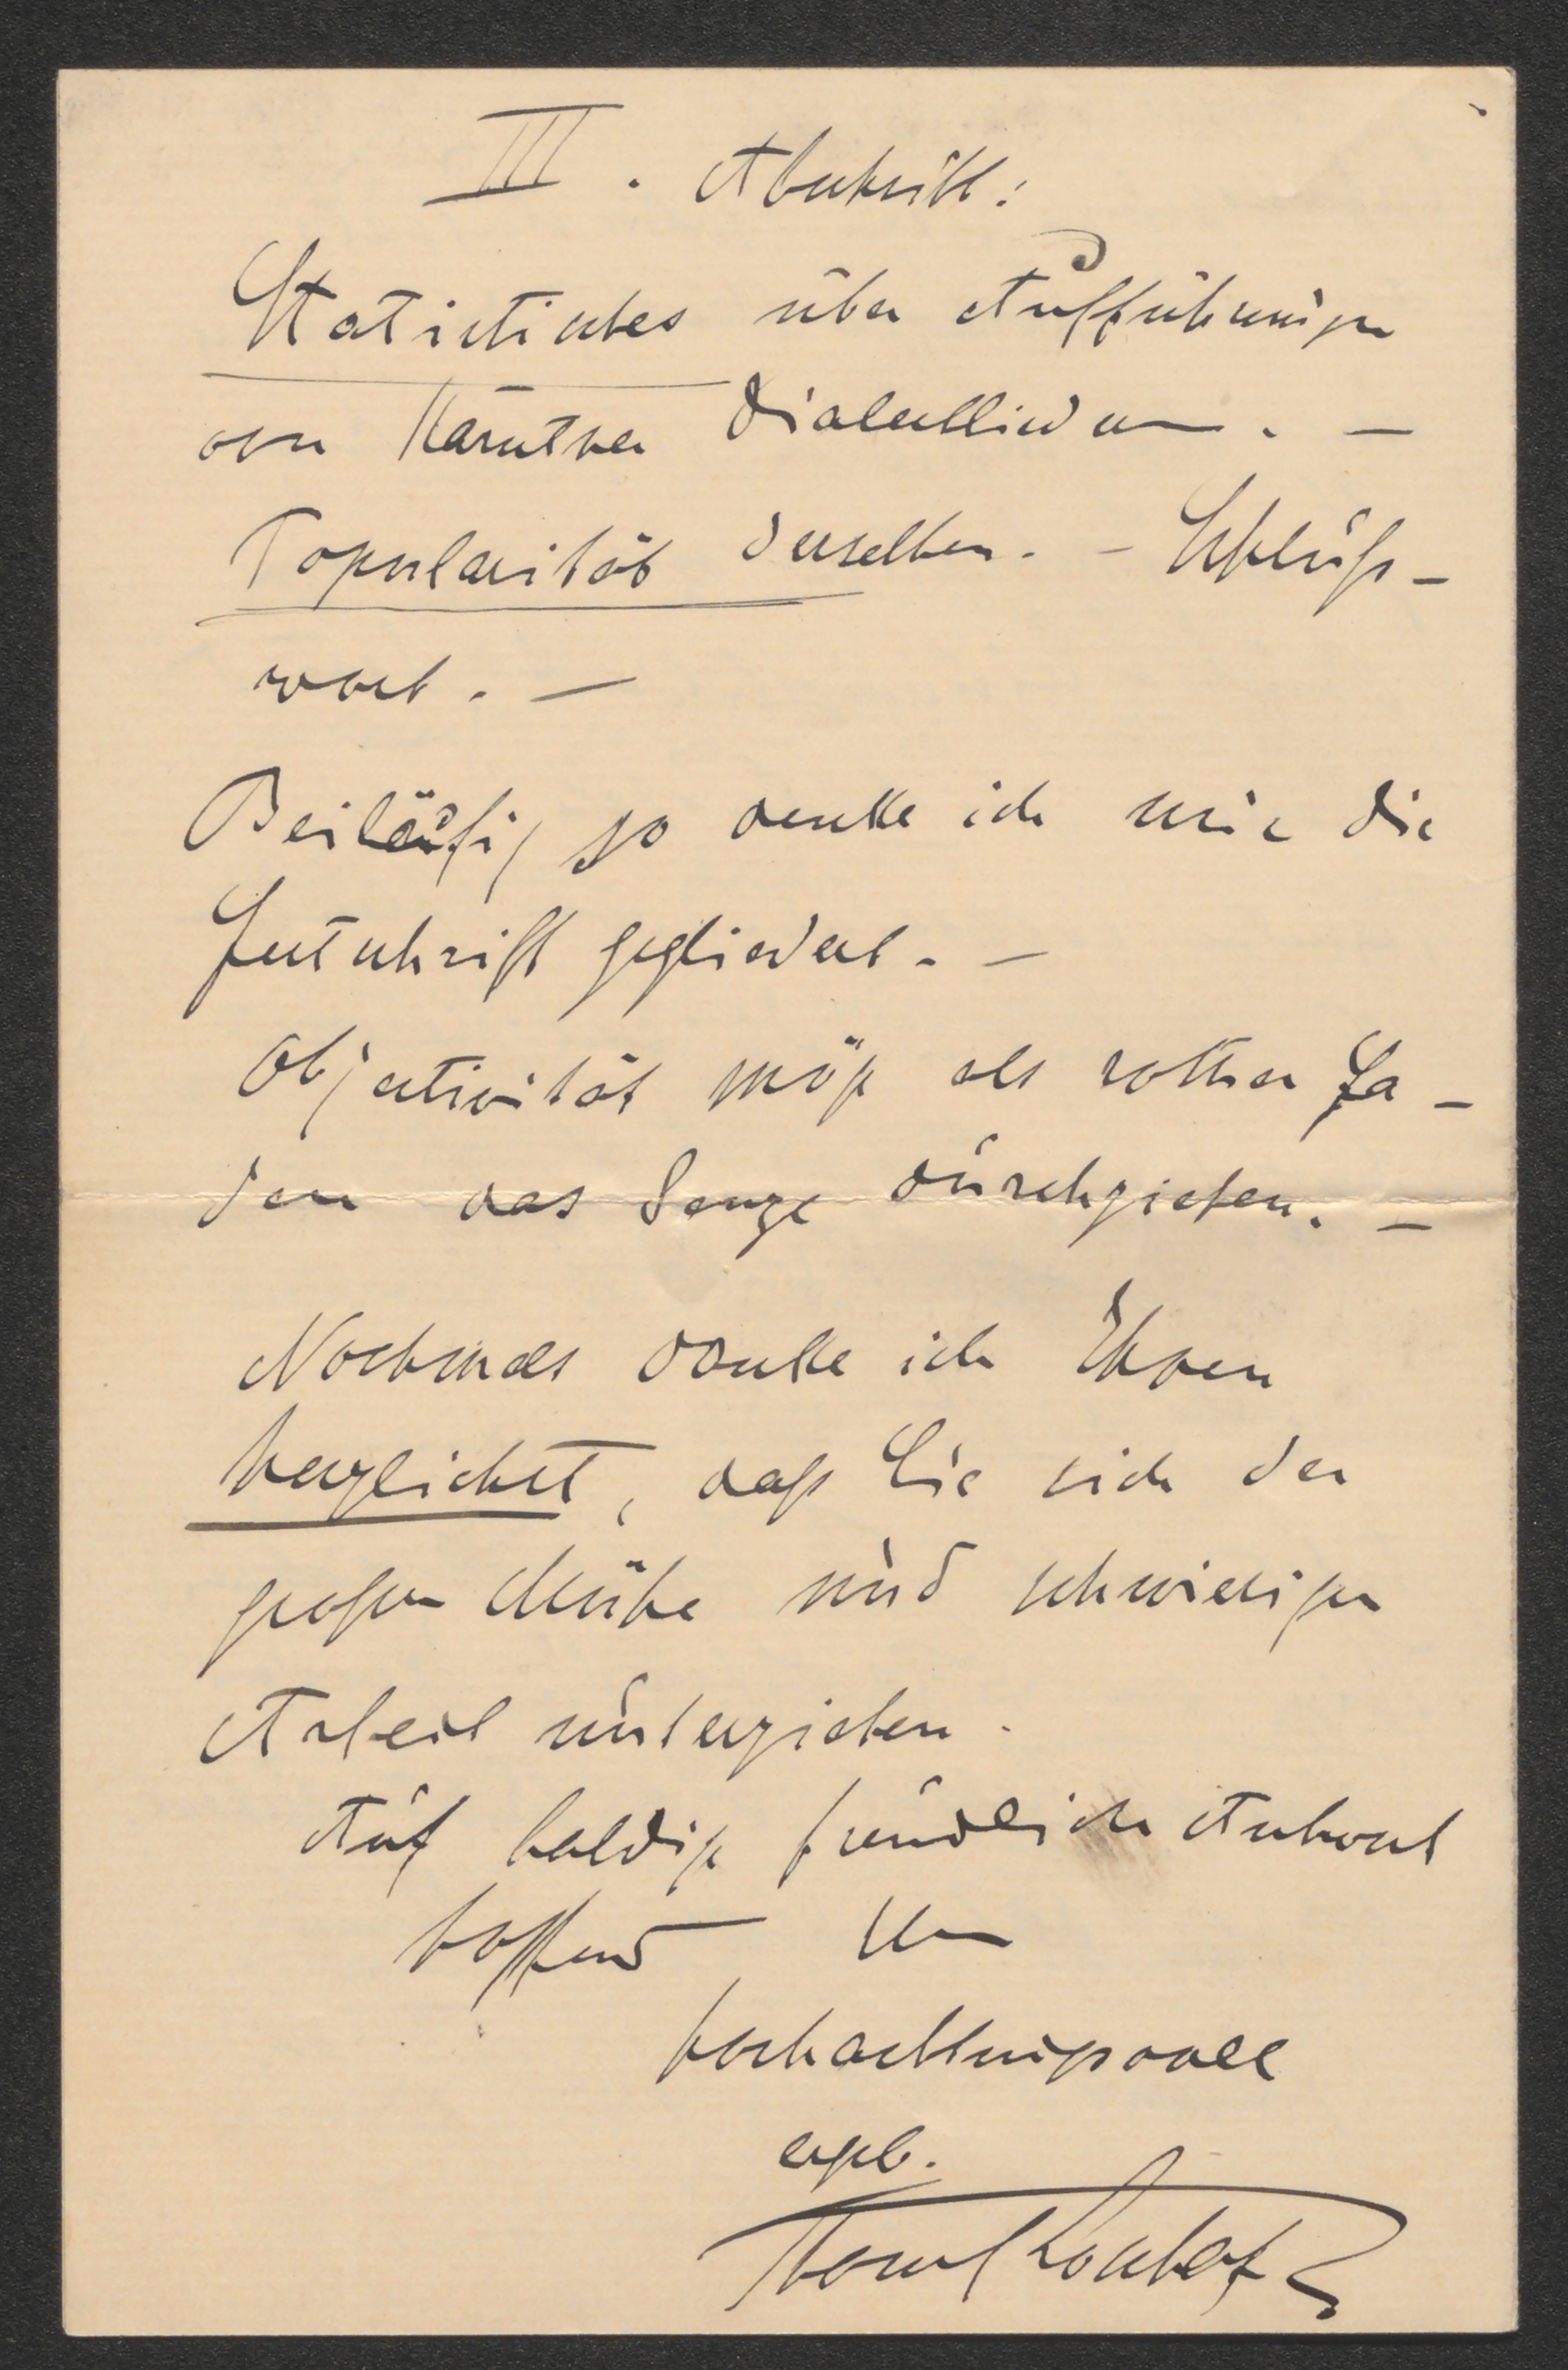 III. Abschnitt:
Statistisches über Aufführungen
von Kärntner Dialectliedern. –
Popularität derselben. – Schluß-
wort. –
Beiläufig so denke ich mir die
Festschrift gegliedert. –
Objectivität möge als rother Fa-
den das Ganze durchziehen. –
Nochmals danke ich Ihnen
herzlichst, daß Sie sich der
großen Mühe und schwierigen
Arbeit unterziehen.
Auf baldige freundliche Antwort
hoffend
hochachtungsvoll
ergeb.
Thomas Koschat